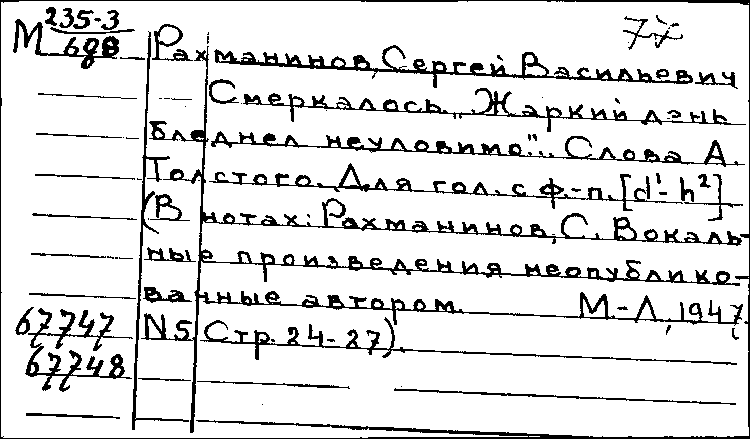 М 235-3/698
77
Рахманинов, Сергей Васильевич
Смеркалось „Жаркий день
бледнел неуловимо"... Слова А.
Толстого. Для гол. с ф.-п. [d¹- h²]
(В нотах: Рахманинов, С. Вокаль-
ные произведения неопублико-
ванные автором. М-Л, 1947.
67747 N5. Стр. 24-27).
67748